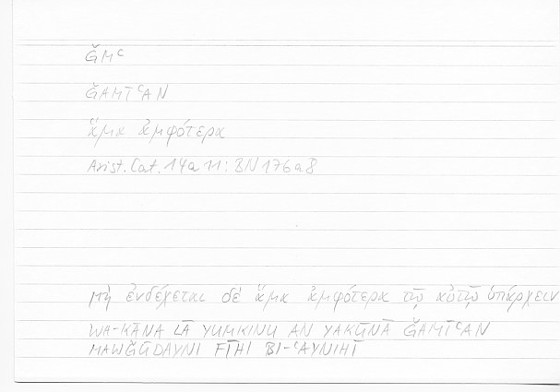 ǦMʿ
ǦAMĪʿAN
ἅμα ἀμφότερα
Arist. Cat. 14a11: BN 176a8
μὴ ἐνδέχεται δὲ ἅμα ἀμφότερα τῷ αὐτῷ ὑπάρχειν
WA-KĀNA LĀ YUMKINU AN YAKŪNĀ ǦAMĪʿAN
MAWǦŪDAYNI FĪHI BI-ʿAYNIHĪ